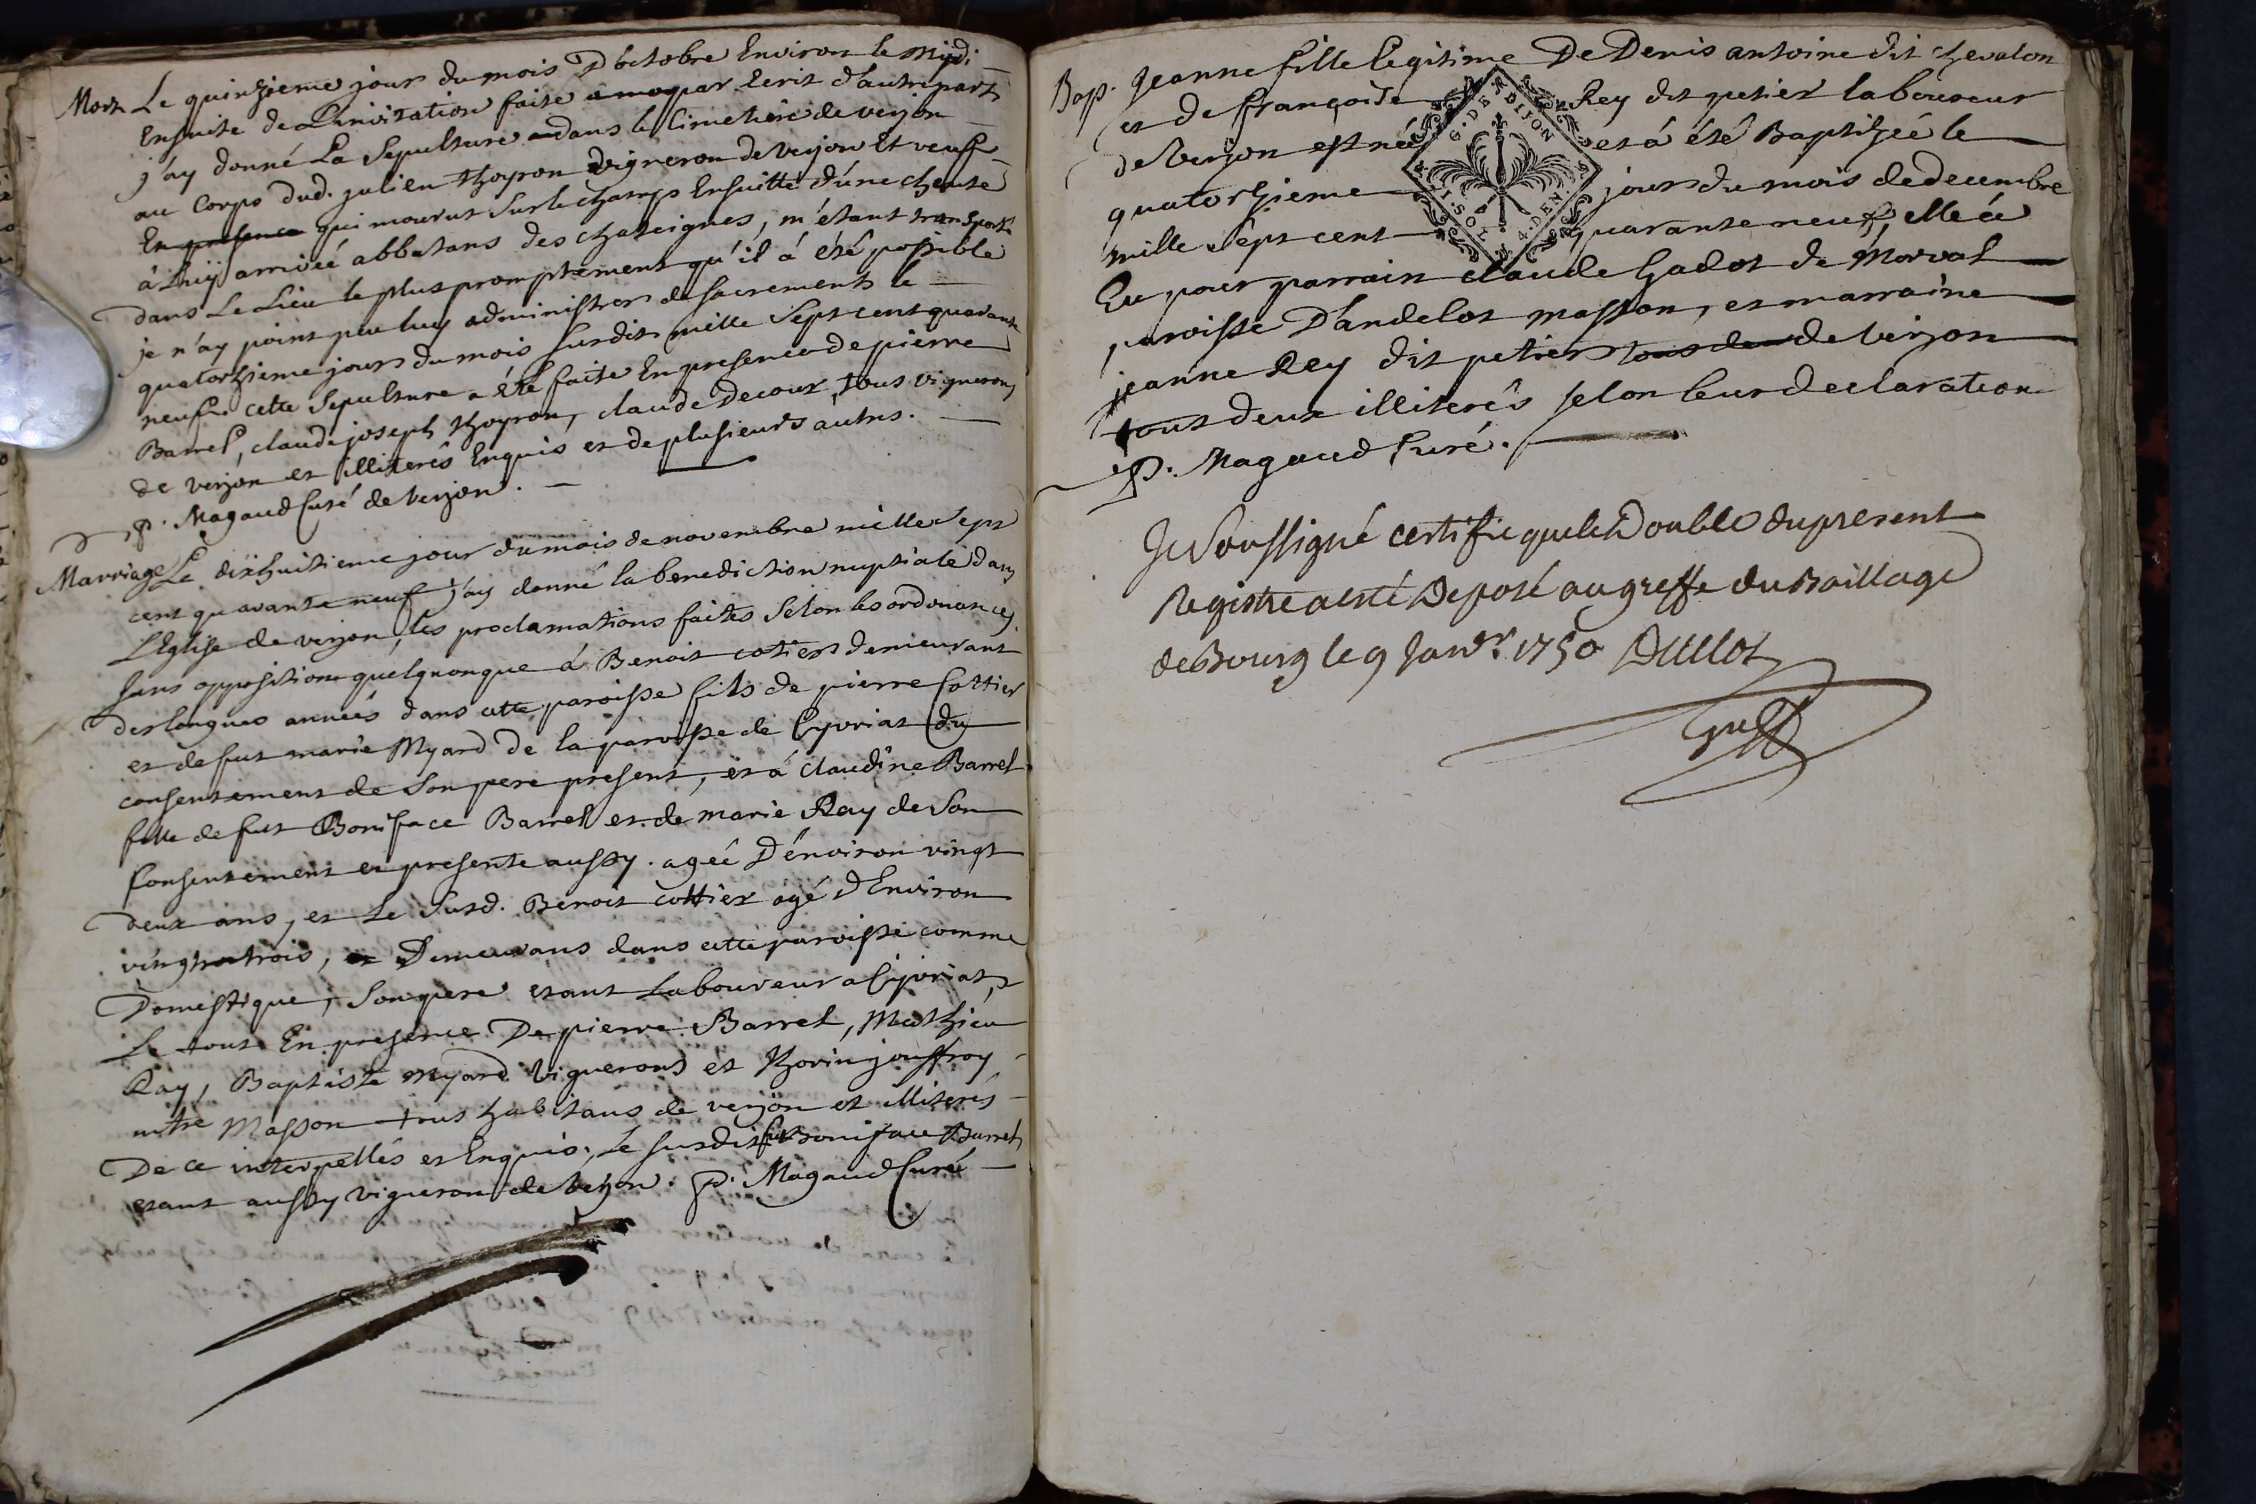 Mort Le quinzieme jour du mois D'octobre Environ le Midi
Ensuite de L'invitation faite a moy par Ecrit d'autre part
j'ay donné La Sepulture dans le Cimetiere de verjon
au Corps dud. julien thoyron vigneron de verjon Et veuf
En presence qui mourut Sur le champs Ensuitte d'une cheutte
à Luÿ arrivée abbatans des chateignes, m'étant transporté
dans Le Lieu le plus promptement qu'il á été possible
je n'ay point pu luy administrer de sacrements le
quatorzieme jours du mois susdit mille Sept cent quarante
neuf cette Sepulture a été faite En presence de pierre
Barrel, claude joseph thoyron, claude Decour, tous vignerons
de verjon et illiterés Enquis et de plusieurs autres.
P. Magaud Curé de verjon.
Marriage Le dixhuitieme jour du mois de novembre mille Sept
cent quarante neuf j'ay donné la benediction nuptiale dans
L'Eglise de verjon, les proclamations faites Selon les ordonances
sans opposition quelquonque á Benoit cotier demeurant
des longues années dans cette paroisse fils de pierre Cottier
et de fut marie Myard de la paroisse de Cyvriat du
consentement de Son pere present, et á claudine Barrel
fille de fut Boniface Barrel et de marie Ray de Son
Consentement et presente aussy. agée D'environ vingt
deux ans, et Le Susd. Benoit cottier agé d'Environ
vingt trois, Demeurans dans cette paroisse comme
Domestique, Son pere etant Laboureur a Cyvriat,
Le tout En presence De pierre Barrel, Mathieu
Ray, Baptiste myard vignerons et thorin jouffroy
mtre Masson tous habitans de verjon et illiterés
De ce interpellés et Enquis, Le susdit fut Boniface Barrel
etant aussy vigneron de verjon. P. Magaud Curé
Bap. Jeanne fille legitime De Denis antoine dit chevalon
et de françoise Rey dit petier laboureur
de verjon est née et á été Baptizée le
quatorzieme jours du mois de decembre
mille Sept cent quarante neuf, elle á
Eu pour parrain claude Gadot de Morval
paroisse D'andelot masson, et marraine
jeanne Rey dit petier de verjon
tous deux illiterés selon leur declaration
P. Magaud Curé.
G. DE DIJON
1. SOL 4. DEN.
Je Soussigné certifie que le Double du present
Registre a esté Deposé au greffe du Baillage
de Bourg le 9 Janvr. 1750